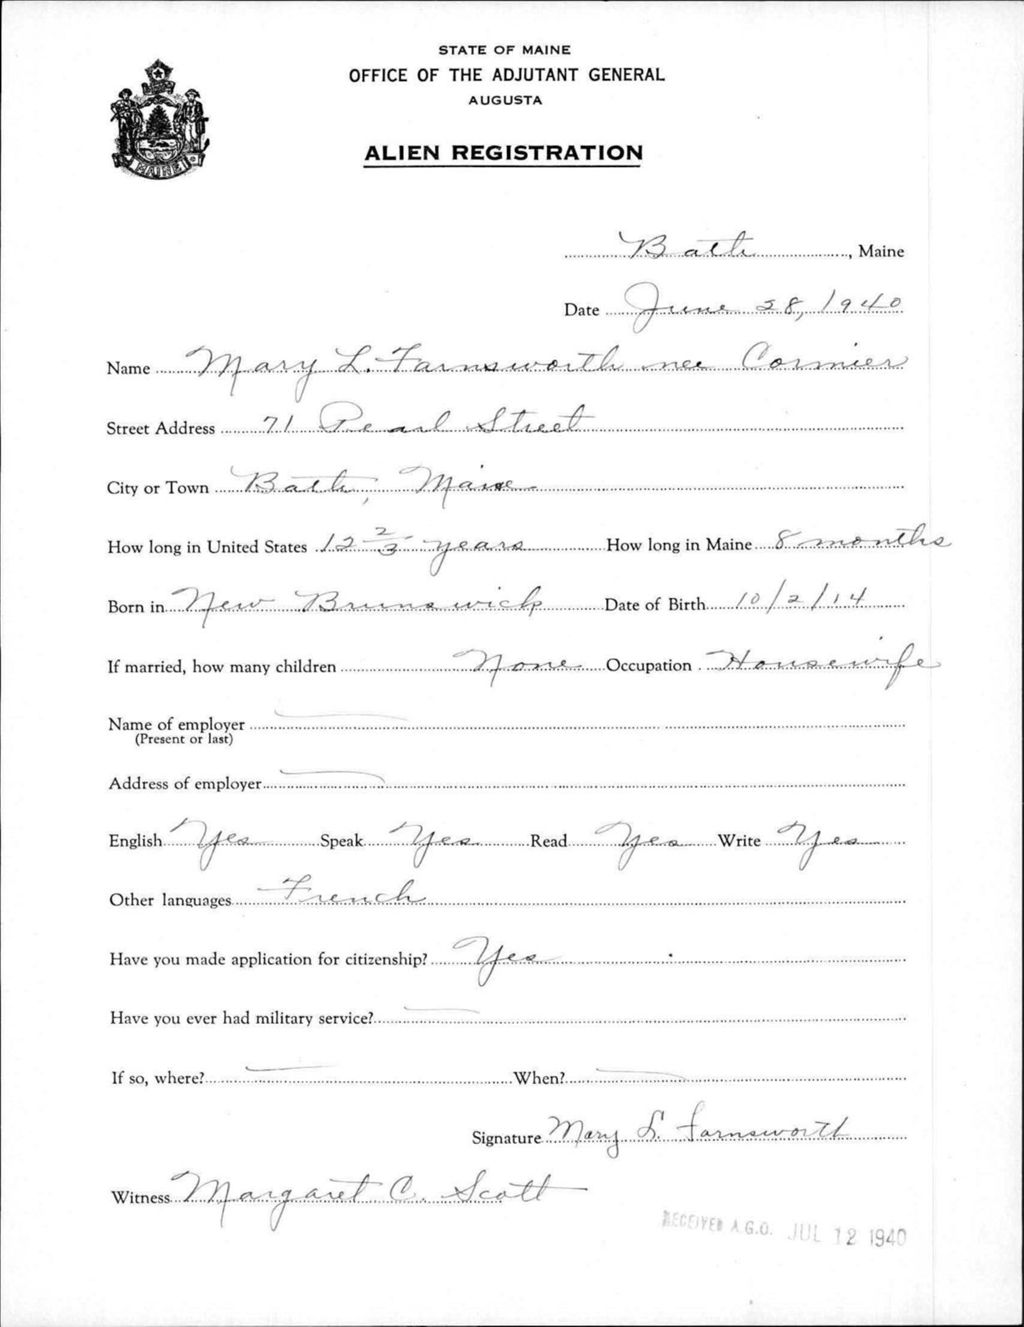 STATE OF MAINE
OFFICE OF THE ADJUTANT GENERAL
AUGUSTA
ALIEN REGISTRATION
MAINE
Bath, Maine
Date June 28, 1940
Name Mary L. Farnsworth nee Cormier
Street Address 71 Pearl Street
City or Town Bath, Maine
How long in United States 12 2/3 years How long in Maine 8 months
Born in New Brunswick Date of Birth 10/2/14
If married, how many children None Occupation Housewife
Name of employer
(Present or last)
Address of employer
English Yes Speak Yes Read Yes Write Yes
Other languages French
Have you made application for citizenship? Yes
Have you ever had military service?
If so, where? When?
Signature Mary L. Farnsworth
Witness Margaret C. Scott
RECEIVED A.G.O. JUL 12 1940